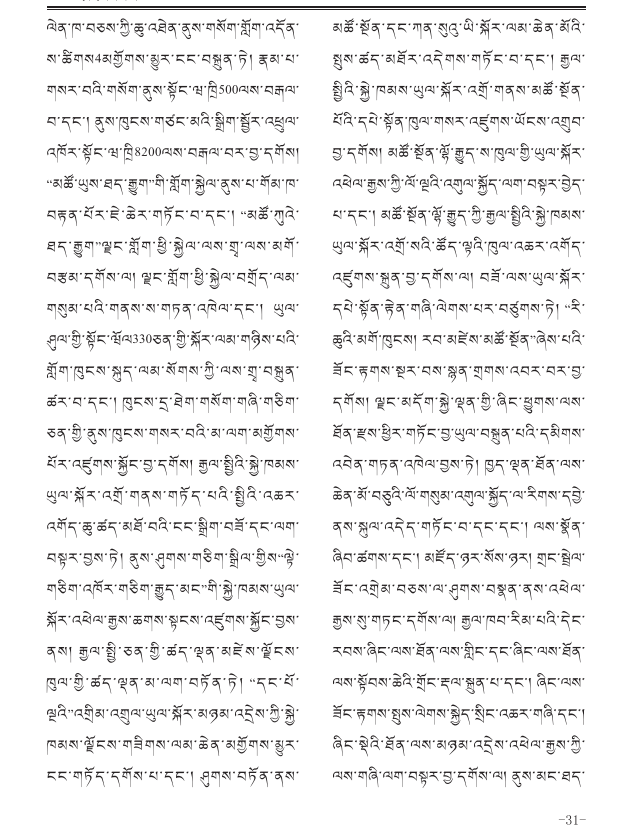 ལེན་ཁ་བཅས་ཀྱི་ཆུ་འཐེན་ནུས་གསོག་གློག་འདོན་
ས་ཚིགས4མགྱོགས་མྱུར་ངང་བསྐྲུན་ཏེ། རྣམ་པ་
གསར་བའི་གསོག་ནུས་སྟོང་ཝ་ཁྲི500ལས་བརྒལ་
བ་དང་། ནུས་ཁུངས་གཙང་མའི་སྒྲིག་སྦྱོར་འཕྲུལ་
འཁོར་སྟོང་ཝ་ཁྲི8200ལས་བརྒལ་བར་བྱ་དགོས།
“མཚོ་ཡུས་ཐད་རྒྱུག”གི་གློག་སྐྱེལ་ནུས་པ་གོམ་ཁ་
བརྟན་པོར་ཇེ་ཆེར་གཏོང་བ་དང་། “མཚོ་ཀུའེ་
ཐད་རྒྱུག”ལྗང་གློག་ཕྱི་སྐྱེལ་ལས་གྲྭ་ལས་མགོ་
བརྩམ་དགོས་ལ། ལྗང་གློག་ཕྱི་སྐྱེལ་བགྲོད་ལམ་
གསུམ་པའི་གནས་ས་གཏན་འཁེལ་དང་། ཡུལ་
ཤུལ་གྱི་སྟོང་ཝོལ330ཅན་གྱི་སྐོར་ལམ་གཉིས་པའི་
གློག་ཁུངས་སྐུད་ལམ་སོགས་ཀྱི་ལས་གྲྭ་བསྐྲུན་
ཚར་བ་དང་། ཁུངས་དྲ་ཐེག་གསོག་གཞི་གཅིག་
ཅན་གྱི་ནུས་ཁུངས་གསར་བའི་མ་ལག་མགྱོགས་
པོར་འཛུགས་སྐྱོང་བྱ་དགོས། རྒྱལ་སྤྱིའི་སྐྱེ་ཁམས་
ཡུལ་སྐོར་འགྲོ་གནས་གཏོད་པའི་སྤྱིའི་འཆར་
འགོད་ཆུ་ཚད་མཐོ་བའི་ངང་སྒྲིག་བཟོ་དང་ལག་
བསྟར་བྱས་ཏེ། ནུས་ཤུགས་གཅིག་སྒྲིལ་གྱིས“ལྟེ་
གཅིག་འཁོར་གཅིག་རྒྱུད་མང”གི་སྐྱེ་ཁམས་ཡུལ་
སྐོར་འཕེལ་རྒྱས་ཆགས་སྟངས་འཛུགས་སྐྱོང་བྱས་
ནས། རྒྱལ་སྤྱི་ཅན་གྱི་ཚད་ལྡན་མཛེས་ལྗོངས་
ཁུལ་གྱི་ཚད་ལྡན་མ་ལག་བཏོན་ཏེ། “དང་པོ་
ལྔའི”འགྲིམ་འགྲུལ་ཡུལ་སྐོར་མཉམ་འདྲེས་ཀྱི་སྐྱེ་
ཁམས་ལྗོངས་གཟིགས་ལམ་ཆེན་མགྱོགས་མྱུར་
ངང་གཏོད་དགོས་པ་དང་། ཤུགས་བཏོན་ནས་
མཚོ་སྔོན་དང་ཀན་སུའུ་ཡི་སྐོར་ལམ་ཆེན་མོའི་
སྤུས་ཚད་མཐོར་འདེགས་གཏོང་བ་དང་། རྒྱལ་
སྤྱིའི་སྐྱེ་ཁམས་ཡུལ་སྐོར་འགྲོ་གནས་མཚོ་སྔོན་
པོའི་དཔེ་སྟོན་ཁུལ་གསར་འཛུགས་ཡོངས་འགྲུབ་
བྱ་དགོས། མཚོ་སྔོན་ལྷོ་རྒྱུད་ས་ཁུལ་གྱི་ཡུལ་སྐོར་
འཕེལ་རྒྱས་ཀྱི་ལོ་ལྔའི་འགུལ་སྐྱོད་ལག་བསྟར་བྱེད་
པ་དང་། མཚོ་སྔོན་ལྷོ་རྒྱུད་ཀྱི་རྒྱལ་སྤྱིའི་སྐྱེ་ཁམས་
ཡུལ་སྐོར་འགྲོ་སའི་ཚོད་ལྟའི་ཁུལ་འཆར་འགོད་
འཛུགས་སྐྲུན་བྱ་དགོས་ལ། བཟོ་ལས་ཡུལ་སྐོར་
དཔེ་སྟོན་རྟེན་གཞི་ལེགས་པར་བཙུགས་ཏེ། “རི་
ཆུའི་མགོ་ཁུངས། རབ་མཛེས་མཚོ་སྔོན”ཞེས་པའི་
ཟོང་རྟགས་སྔར་བས་སྙན་གྲགས་འབར་བར་བྱ་
དགོས། ལྗང་མདོག་སྐྱེ་ལྡན་གྱི་ཞིང་ཕྱུགས་ལས་
ཐོན་རྫས་ཕྱིར་གཏོང་བྱ་ཡུལ་བསྐྲུན་པའི་དམིགས་
འབེན་གཏན་འཁེལ་བྱས་ཏེ། ཁྱད་ལྡན་ཐོན་ལས་
ཆེན་མོ་བཅུའི་ལོ་གསུམ་འགུལ་སྐྱོད་ལ་རིགས་དབྱེ་
ནས་སྐུལ་འདེད་གཏོང་བ་དང་དང་། ལས་སྣོན་
ཞིབ་ཚགས་དང་། མཛོད་ཉར་སོས་ཉར། གྲང་སྦྲེལ་
ཟོང་འགྲེམ་བཅས་ལ་ཤུགས་བསྣན་ནས་འཕེལ་
རྒྱས་སུ་གཏང་དགོས་ལ། རྒྱལ་ཁབ་རིམ་པའི་དེང་
རབས་ཞིང་ལས་ཐོན་ལས་གླིང་དང་ཞིང་ལས་ཐོན་
ལས་སྟོབས་ཆེའི་གྲོང་རྡལ་སྐྲུན་པ་དང་། ཞིང་ལས་
ཟོང་རྟགས་སྤུས་ལེགས་སྐྱེད་སྲིང་འཆར་གཞི་དང་།
ཞིང་སྡེའི་ཐོན་ལས་མཉམ་འདྲེས་འཕེལ་རྒྱས་ཀྱི་
ལས་གཞི་ལག་བསྟར་བྱ་དགོས་ལ། ནུས་མང་ཐད་
-31-